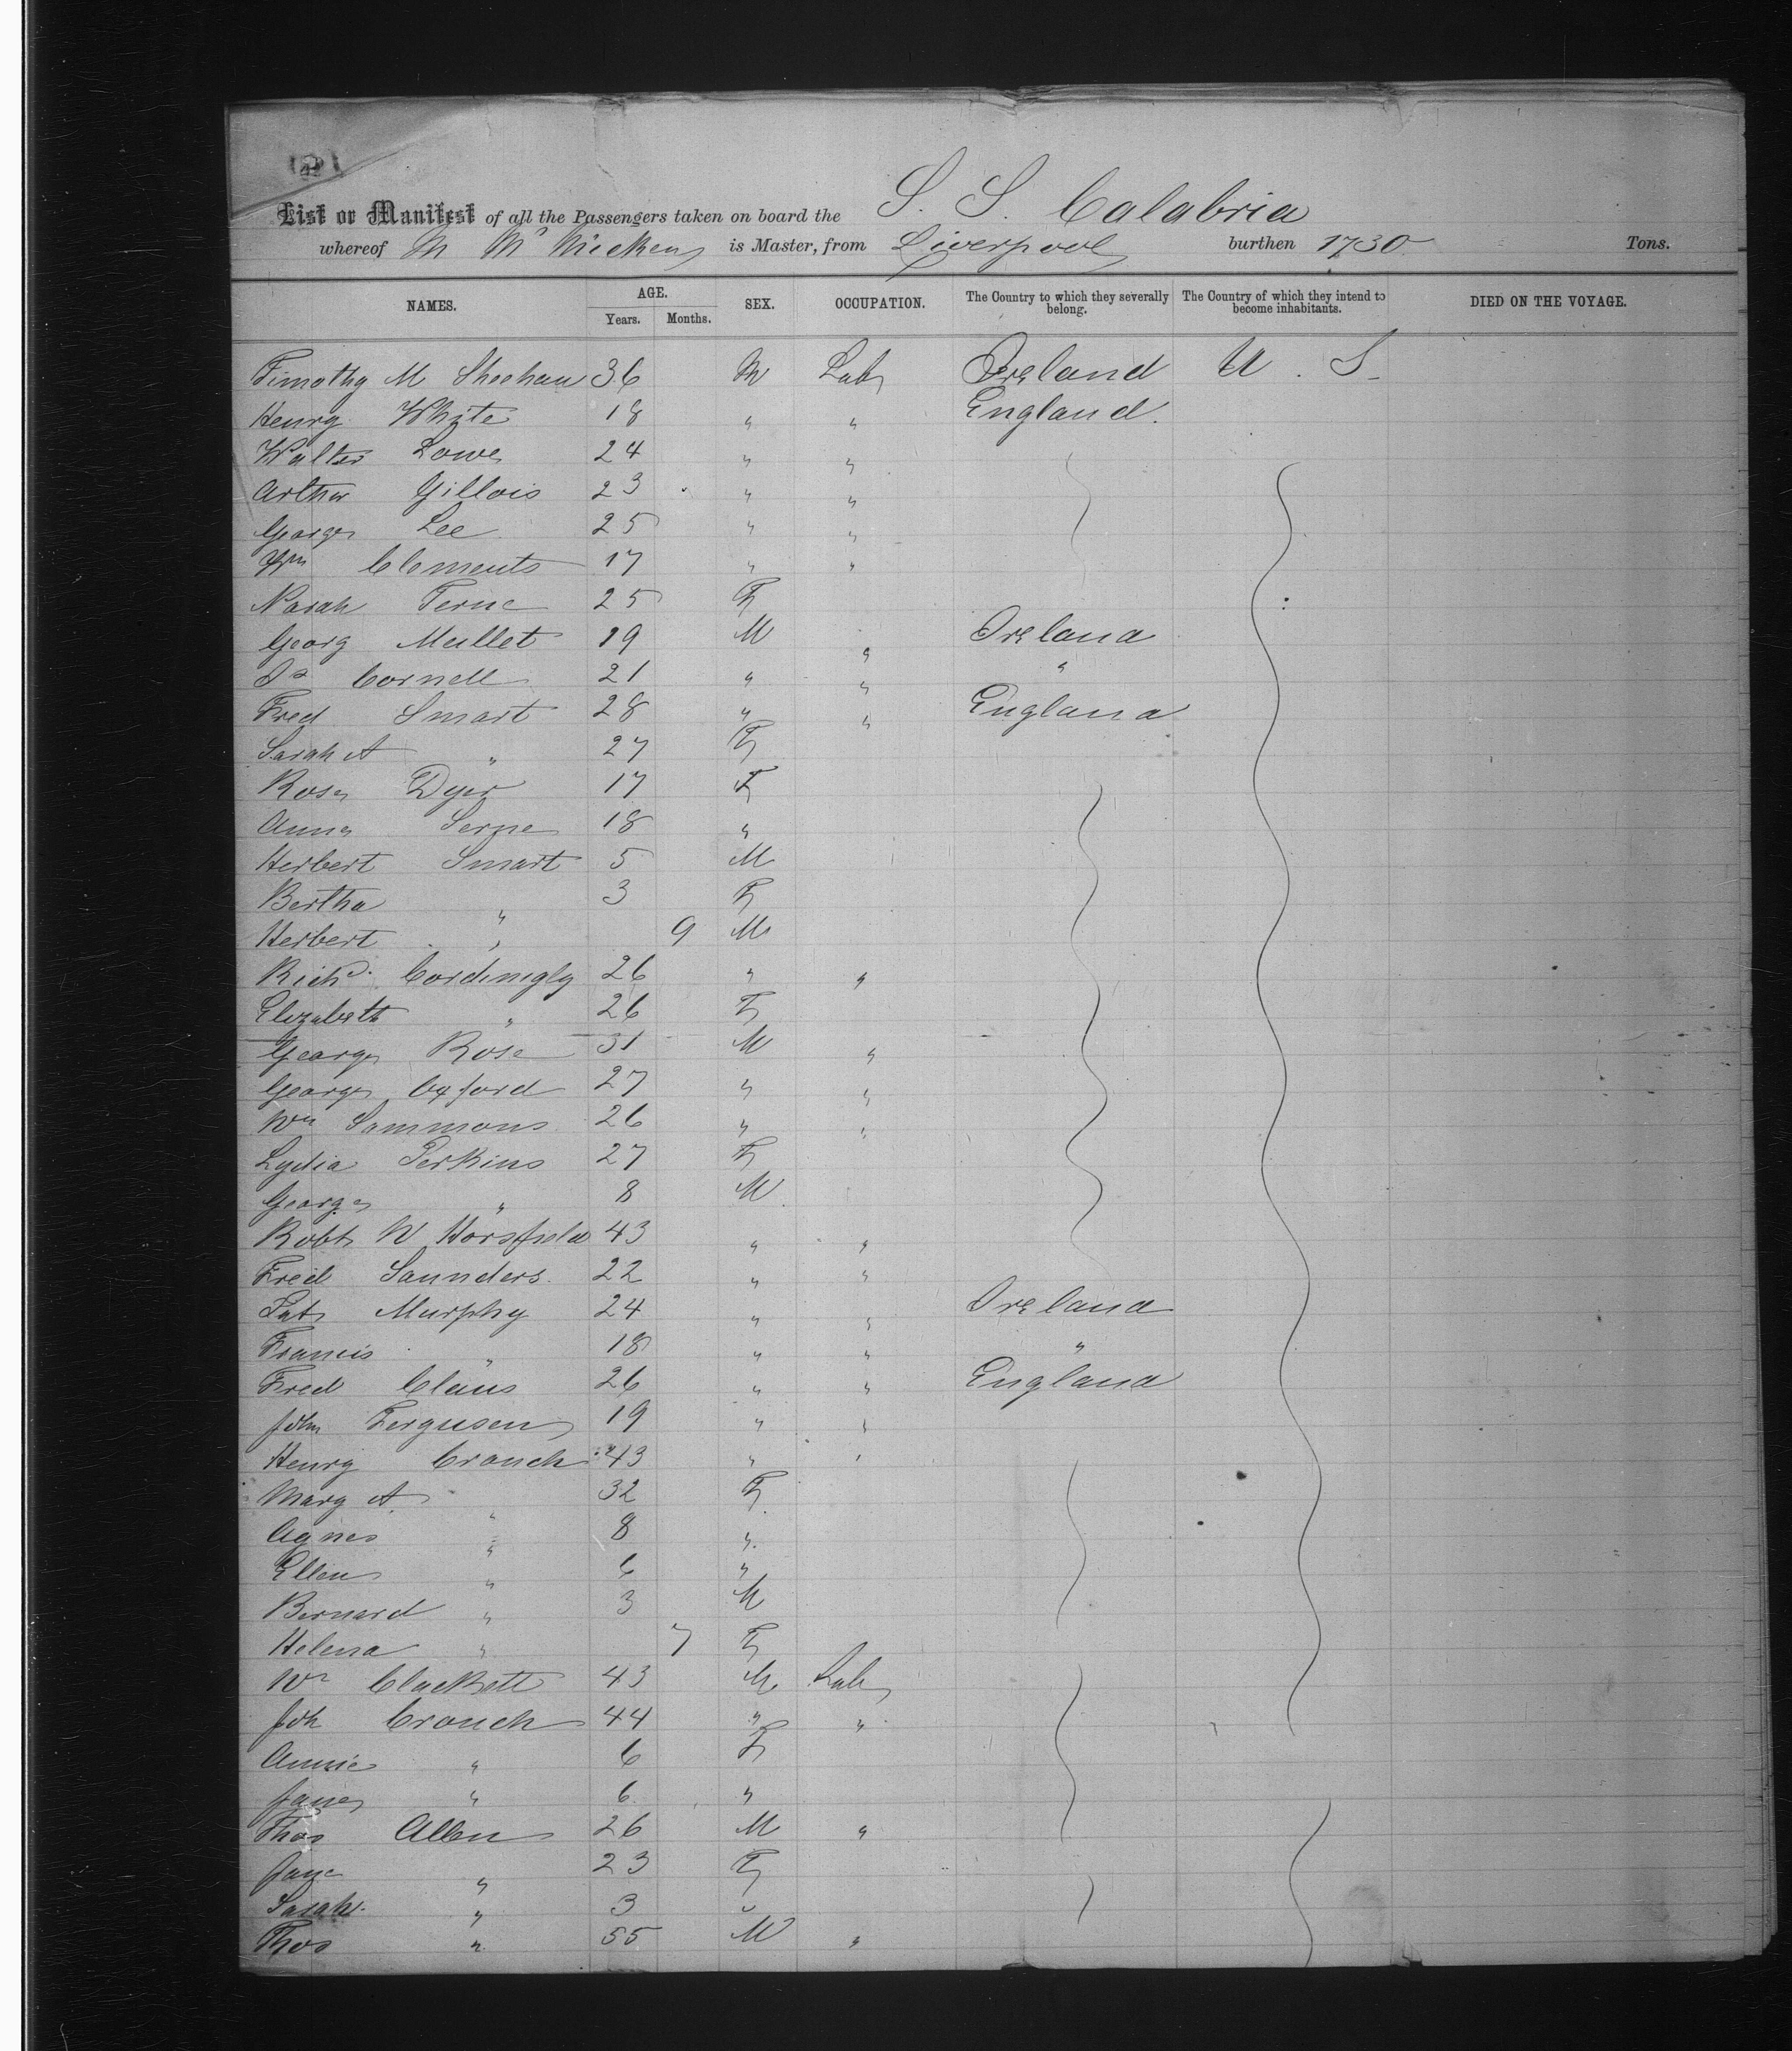 List or Manifest of all the Passengers taken on board the S. S. Calabria
whereof M McMicken is Master, from Liverpool burthen 1730 Tons.
NAMES. AGE. SEX. OCCUPATION. The Country to which they severally belong. The Country of which they intend to become inhabitants. DIED ON THE VOYAGE.
Years. Months.
Timothy M Sheehan 36 M Lab Ireland U. S.
Henry Whyte 18 " " England.
Walter Lowe 24 " "
Arthur Gillois 23 " "
George Lee 25 " "
Wm Clements 17 " "
Ferne 25 F
Georg Mullet 19 M " Ireland
Cornell 21 " " "
Fred Smart 28 " " England
Sarah A " 27 F
Rose Dyer 17 F
Anna 18 "
Herbert Smart 5 M
Bertha " 3 F
Herbert " 9 M
Richd. Cordingly 26 " "
Elizabeth " 26 F
George Rose 31 M "
George Oxford 27 " "
Wm Sammons 26 " "
Lydia Perkins 27 F
George " 8 M
Robt W Horsfield 43 " "
Fred Saunders. 22 " "
Pat Murphy 24 " " Ireland
Francis " 18 " " "
Fred Claus 26 " " England
John Fergusen 19 " "
Henry Crouch 43 " "
Mary A " 32 F
Agnes " 8 "
Ellen " 6 "
Bernard " 3 M
Helena " 7 F
Wm Clackett 43 M Lab
Joh Crouch 44 " "
Annie " 6 F
Jane " 6 "
Thos Allen 26 M "
Jane " 23 F
Sarah " 3 "
Thos " 55 M "